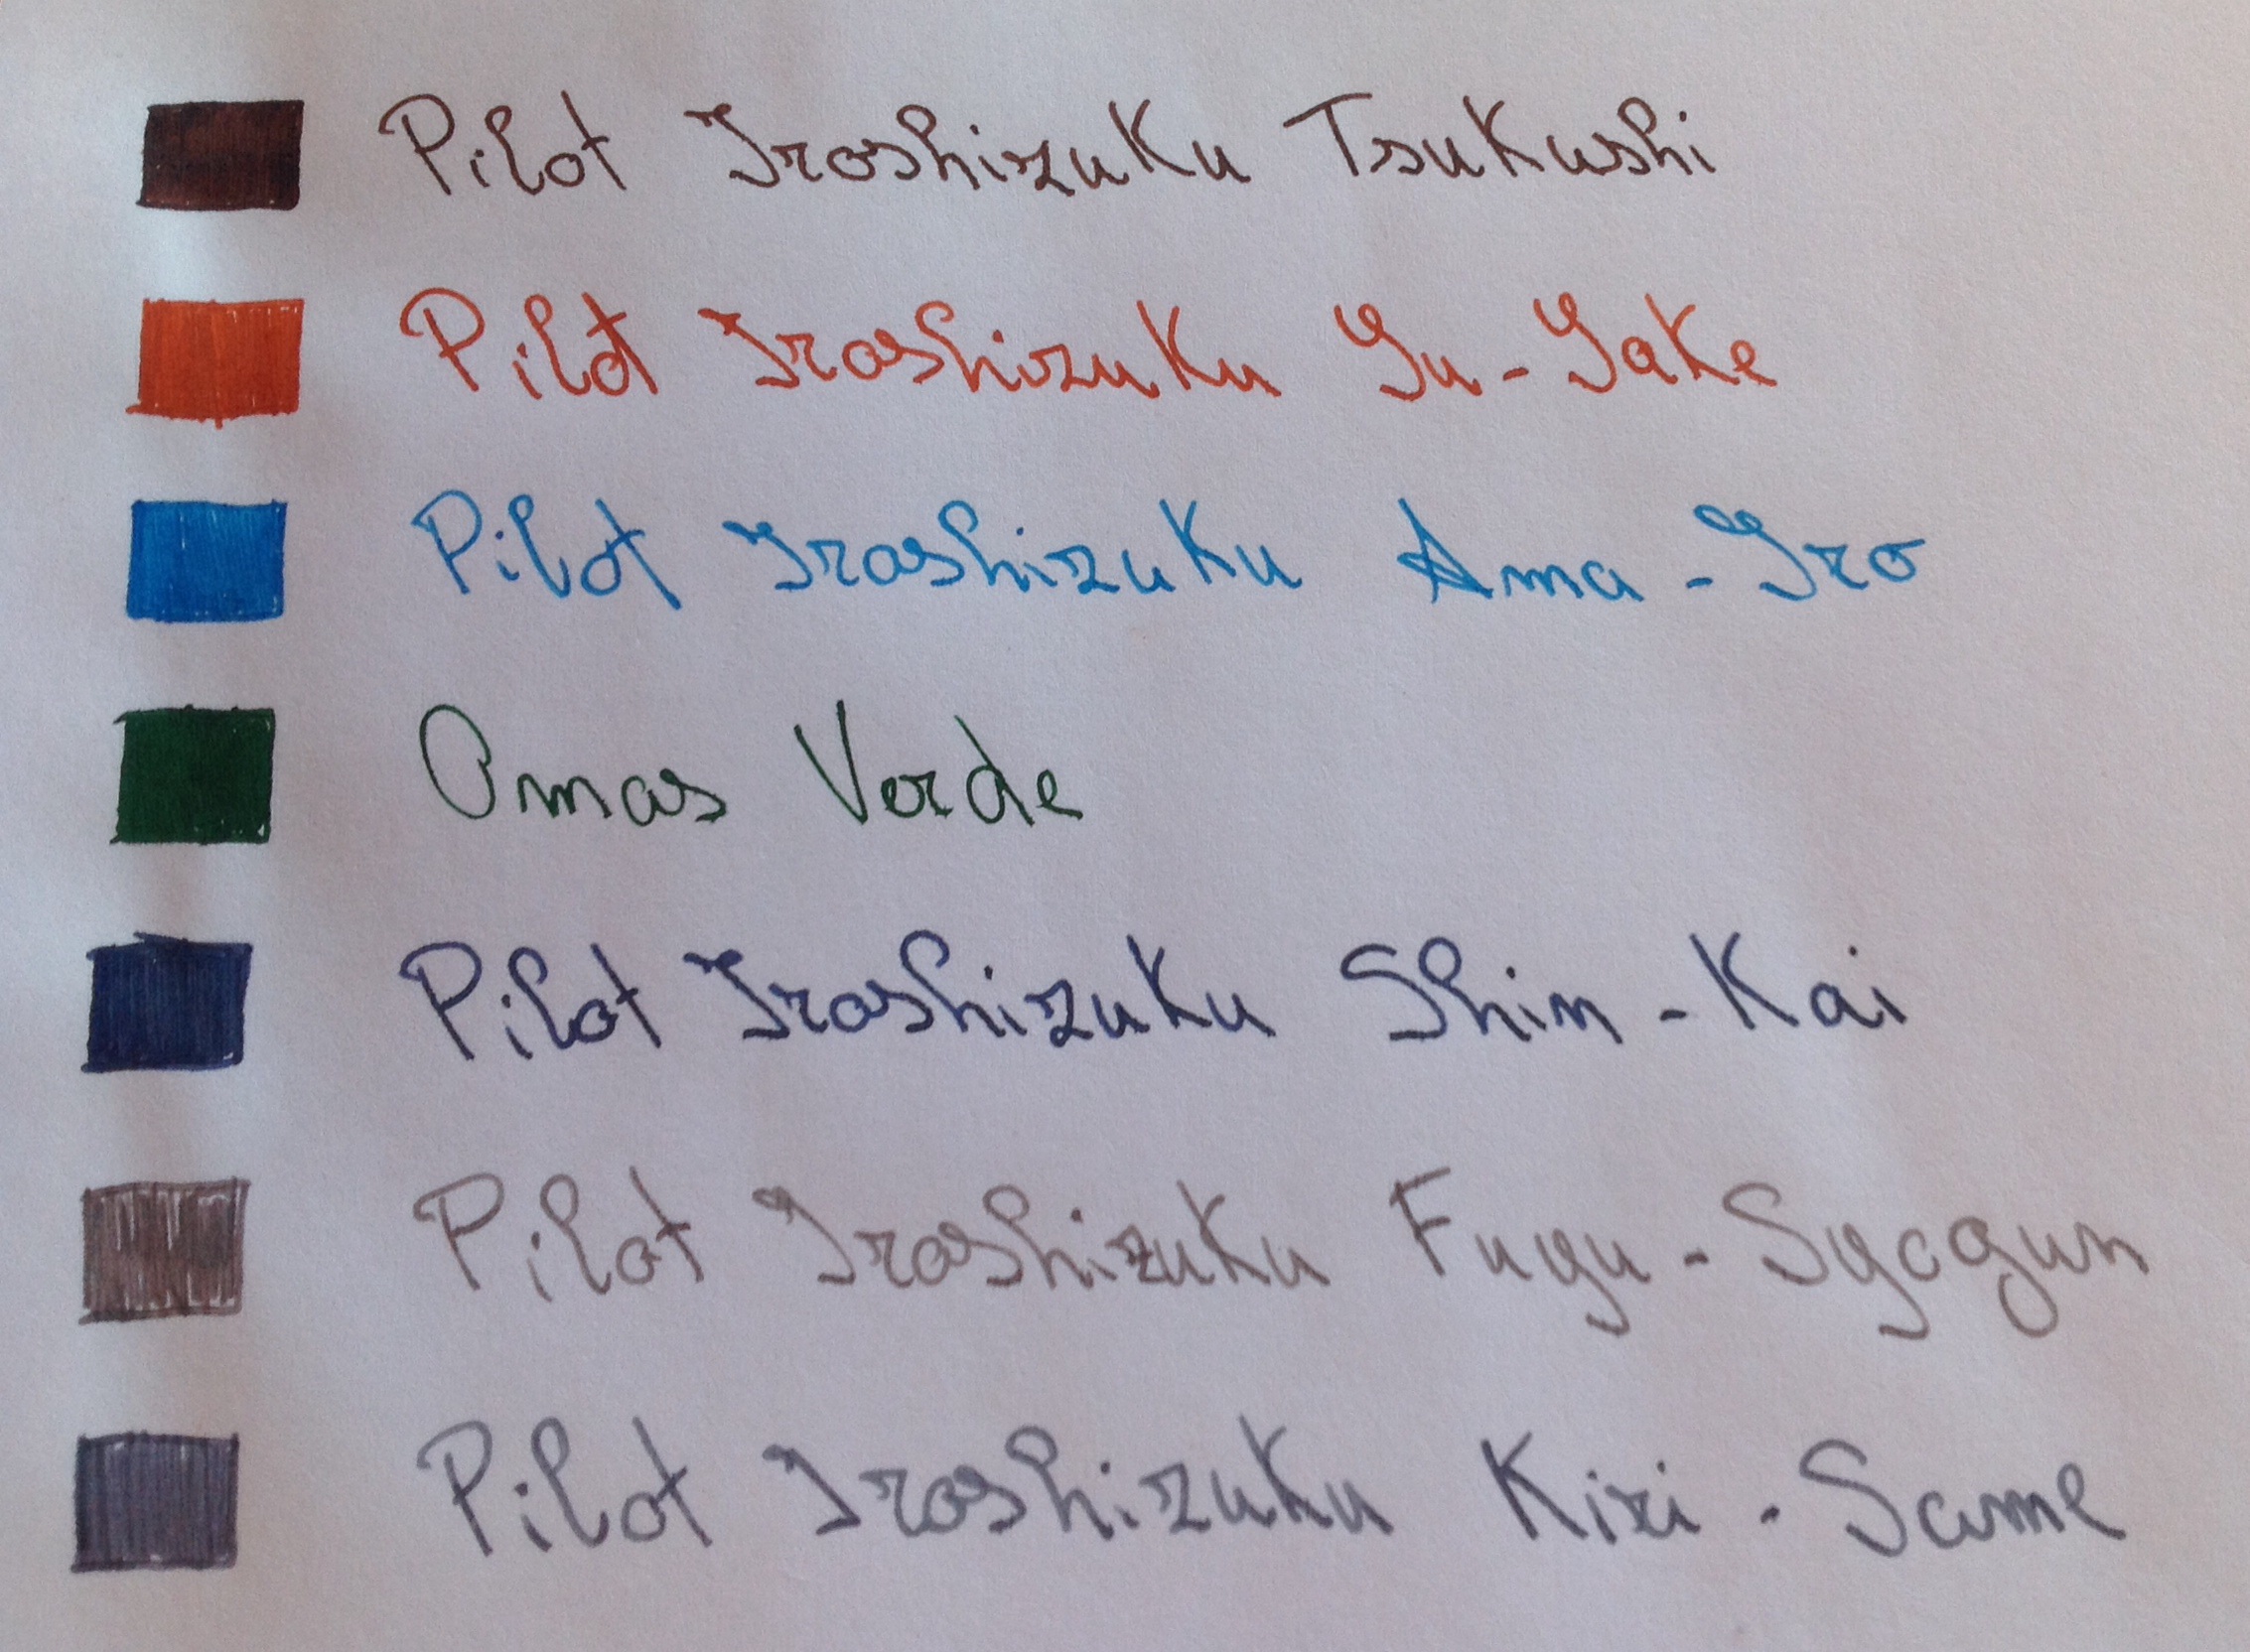 Pilot Iroshizuku Tsukushi
Pilot Iroshizuku Yu-Yake
Pilot Iroshizuku Ama-Iro
Omas Verde
Pilot Iroshizuku Shin-Kai
Pilot Iroshizuku Fuyu-Syogun
Pilot Iroshizuku Kiri-Same